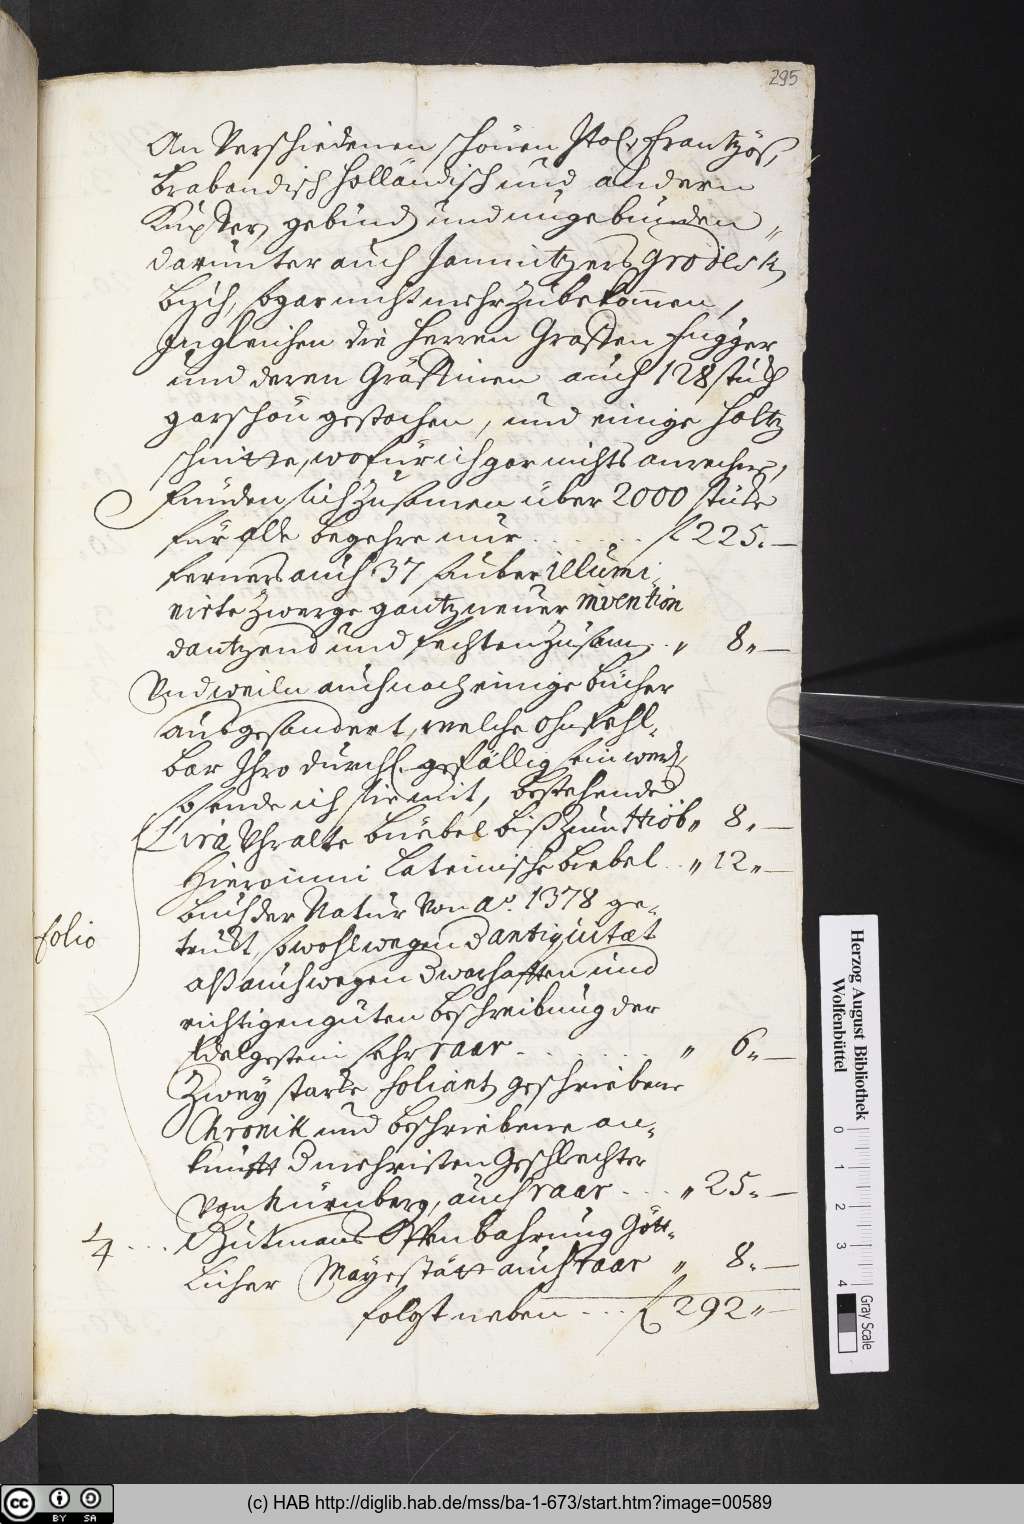 295
An Verschiedenen schönen Ital. Frantzös,
Brabandisch Holländisch und andern
Kupfter, gebund und ungebunden „
darunter auch Jamnitzers Grodesk
Buch, so gar nicht mehr zubekommen,
Ingleichen die Herren Graffen Fugger
und deren Gräffinen auch 128 stuck
gar schön gestochen, und einige Holtz
schnitte, wofür ich gar nichts anrechne,
Finden sich zusamen über 2000 stüke
für alle begehre nur . . . . . . f 225. —
Ferners auch 37 sauber illumi-
nirte Zwerge gantz neuer invention
dantzend und fechten zusam . „ 8„ —
Und weiln auch noch einige Bücher
ausgesondert, welche ohnfehl-
bar Ihro Durchl. gefällig sein werd,
so sende ich sie mit, bestehende
Lira Uhralte Büebel biß zum Hiob „ 8„ —
Hieronimi Lateinische Biebel . . „ 12„ —
folio
Buch der Natur Von Ao. 1378 ge-
trukt, sowohl wegen d antiquitæt
alß auch wegen d warhafften und
richtigen guten Beschreibung der
Edelgestein sehr raar . . . . . „ 6„ —
Zwey starke Foliant geschriebene
Chronik und beschriebene an-
kunfft d mehristen Geschlechter
Von Nürnberg, auch raar . . . „ 25„ —
4 . . . Gutmans Offenbahrung Gött-
licher Mayestätt auch raar „ 8„ —
folgt neben . . . f 292„ —
Herzog August Bibliothek
Wolfenbüttel
0 1 2 3 4
Gray Scale
cc BY SA
(c) HAB http://diglib.hab.de/mss/ba-1-673/start.htm?image=00589